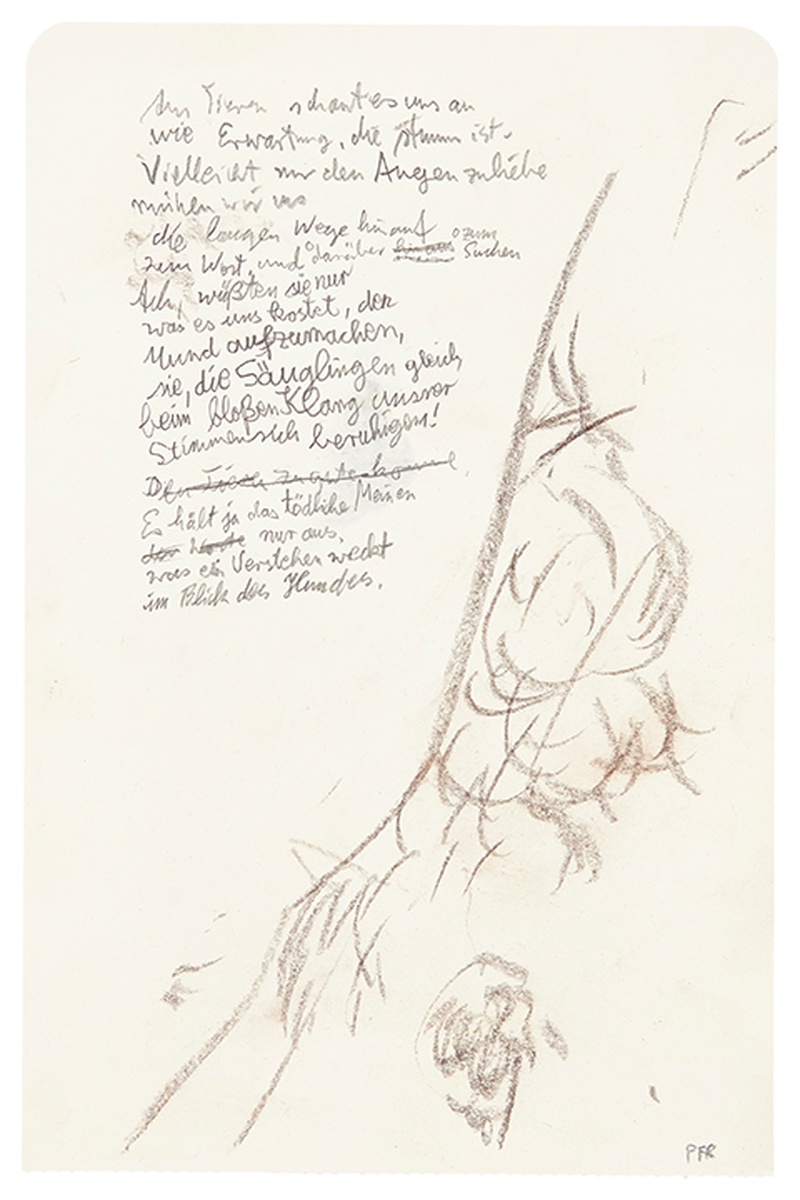 Aus Tieren schaut es uns an
wie Erwartung, die stumm ist.
Vielleicht nur den Augen zuliebe
mühen wir uns
die langen Wege hinauf
zum Wort, und darüber hinaus zum Suchen
Ach, wüßten sie nur
was es uns kostet, den
Mund aufzumachen,
sie, die Säuglingen gleich
beim bloßen Klang unsrer
Stimmen sich beruhigen!
Den Tieren zugute komme
Es hält ja das tödliche Meinen
der Worte nur aus,
was ein Verstehen weckt
im Blick des Hundes.
PFR